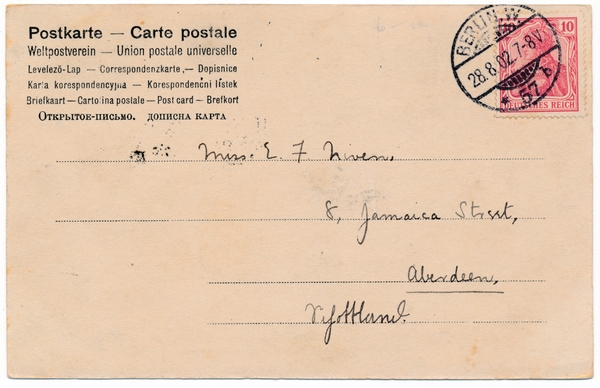 Postkarte — Carte postale
Weltpostverein — Union postale universelle
Levelező-Lap — Correspondenzkarte — Dopisnice
Karta korespondencyjna — Korespondenčni lístek
Briefkaart — Cartolina postale — Post card — Brefkort
Открытое-письмо. дописна карта
BERLIN. W.
28.8.02.7-8V.
57 b
10
DEUTSCHES REICH
Miss. E. F. Niven,
8, Jamaica Street,
Aberdeen,
Schottland.